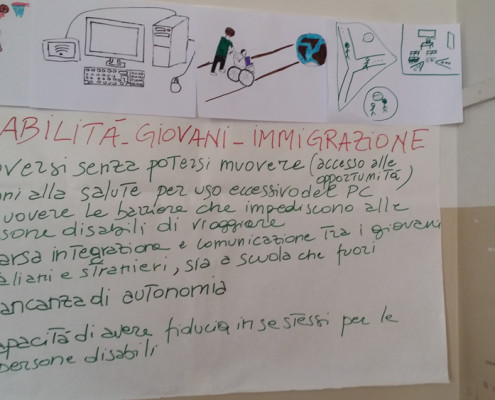 ABILITÀ - GIOVANI - IMMIGRAZIONE
oversi senza potersi muovere (accesso alle opportunità)
nni alla salute per uso eccessivo del PC
uovere le barriere che impediscono alle
rsone disabili di viaggiare
arsa integrazione e comunicazione tra i giovani
aliani e stranieri, sia a scuola che fuori
ancanza di autonomia
apacità di avere fiducia in se stessi per le
persone disabili